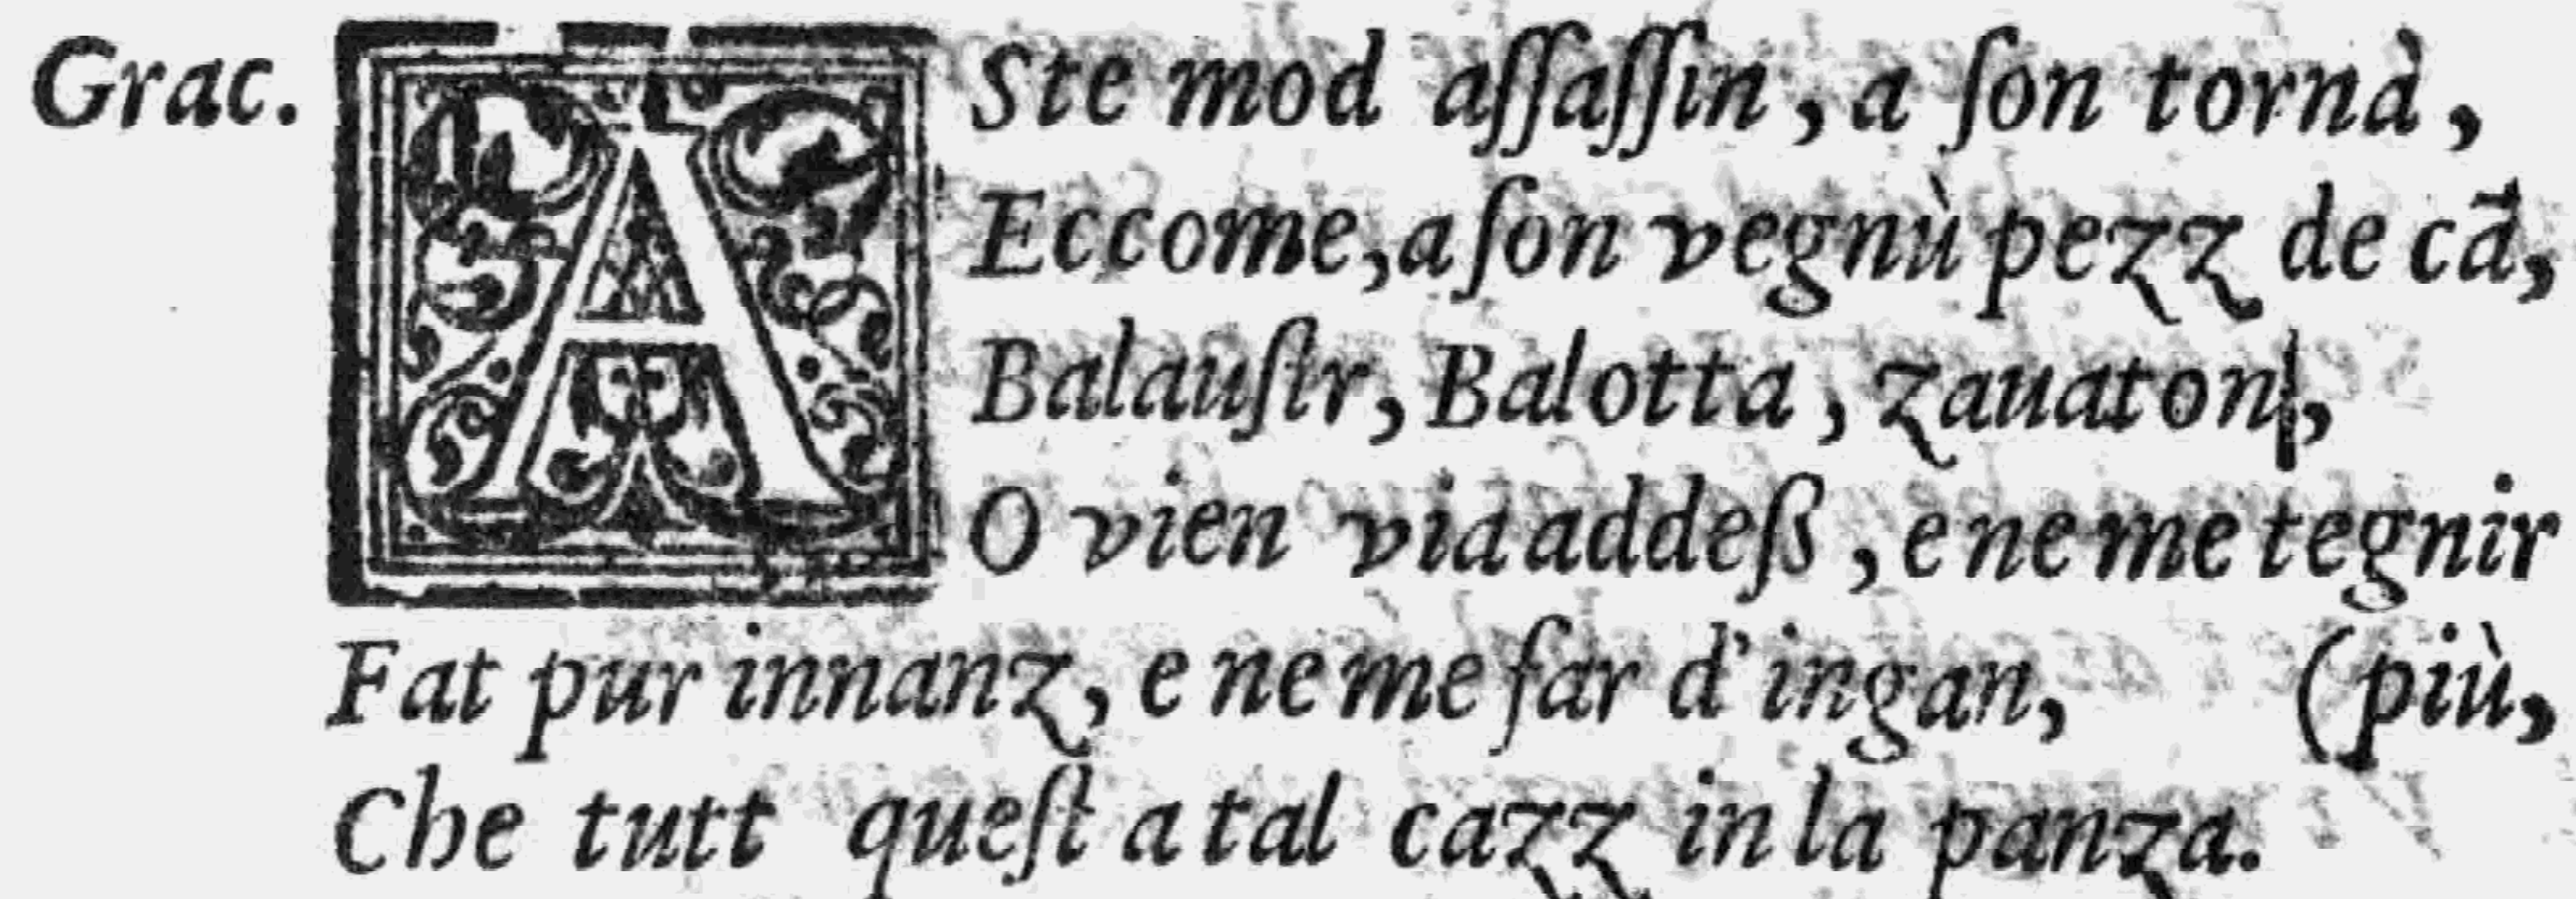 Grac. ASte mod aſſaſſin, a ſon tornà,
Eccome, a ſon vegnù pezz de cã,
Balauſtr, Balotta, zauaton,
O vien via addeſß, e ne me tegnir
Fat pur innanz, e ne me far d'ingan, (più,
Che tutt queſt a tal cazz in la panza.